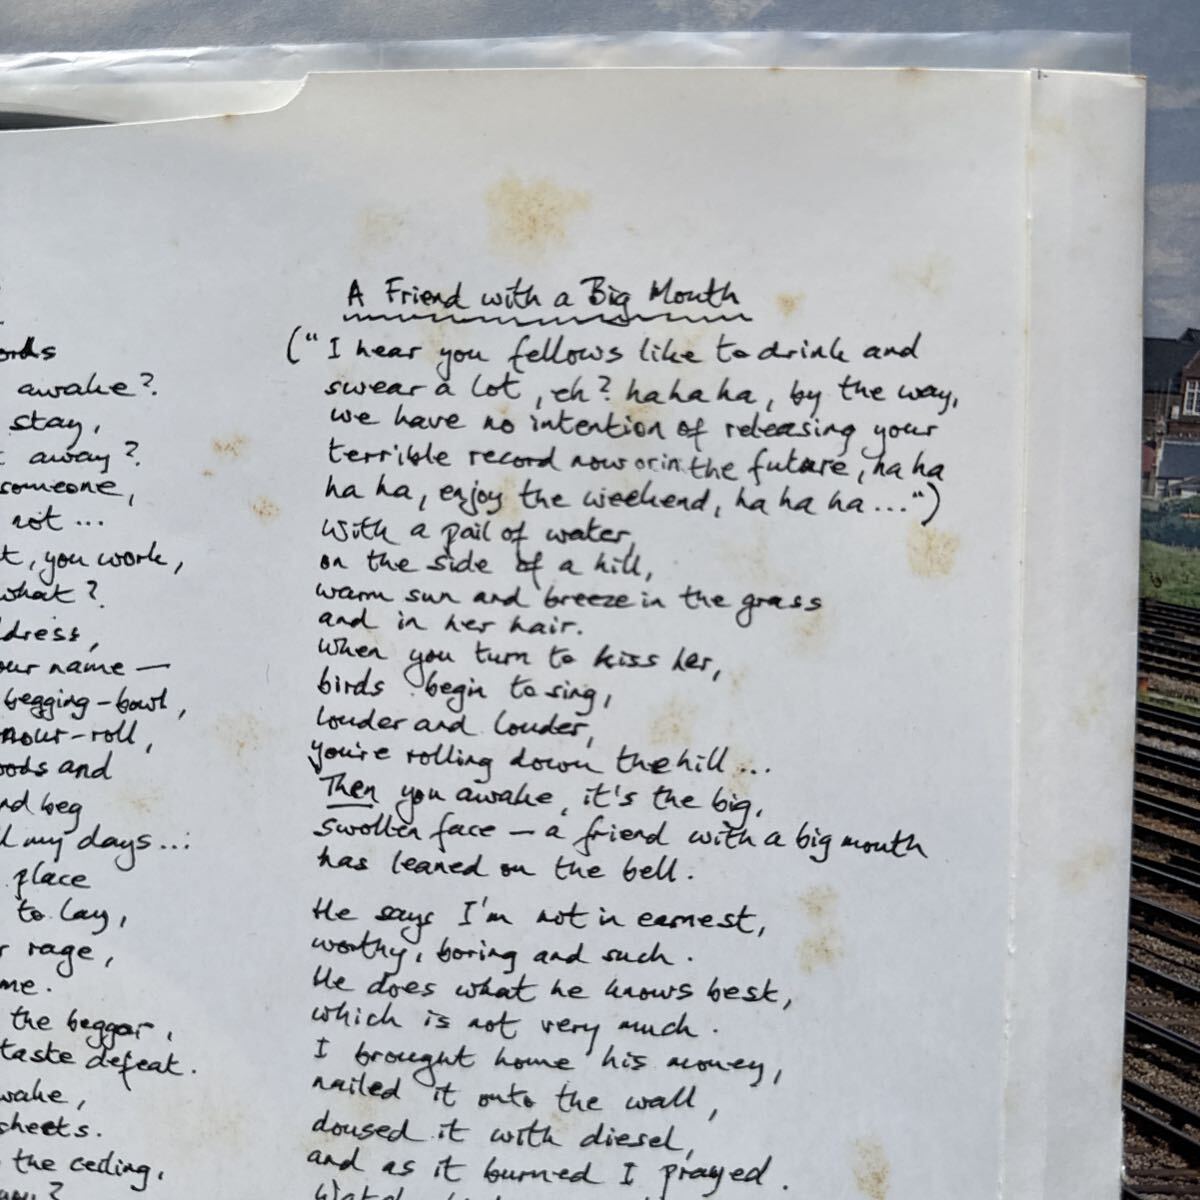 ords
awake?
stay,
away?
someone,
not...
t, you work,
what?
dress,
our name —
begging-bowl,
nour-roll,
oods and
nd beg
l my days...
place
to lay,
r rage,
me.
the beggar,
taste defeat.
wake,
sheets.
the ceiling,
A Friend with a Big Mouth
("I hear you fellows like to drink and
swear a lot, eh? ha ha ha, by the way,
we have no intention of releasing your
terrible record now or in the future, ha ha
ha ha, enjoy the weekend, ha ha ha...")
With a pail of water,
on the side of a hill,
warm sun and breeze in the grass
and in her hair.
When you turn to kiss her,
birds begin to sing,
louder and louder,
you're rolling down the hill...
Then you awake, it's the big,
swollen face — a friend with a big mouth
has leaned on the bell.
He says I'm not in earnest,
worthy, boring and such.
He does what he knows best,
which is not very much.
I brought home his money,
nailed it onto the wall,
doused it with diesel,
and as it burned I prayed.